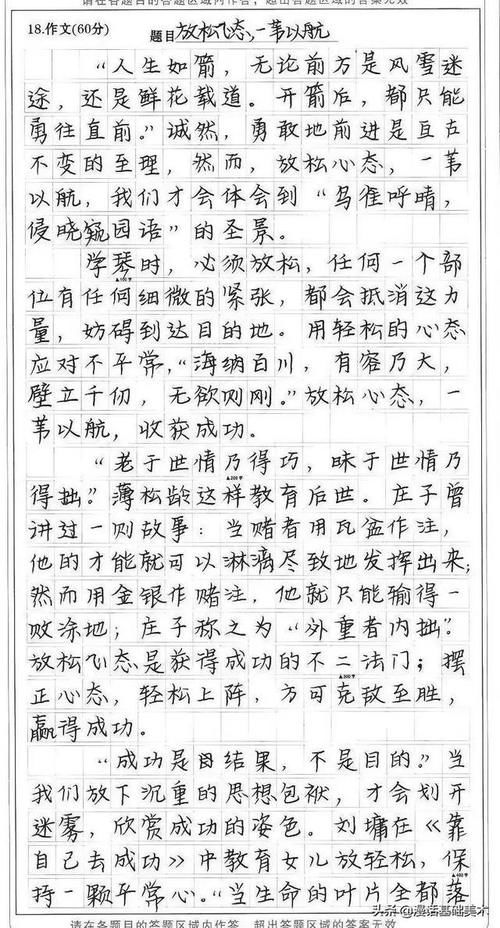 请在各题目的答题区域内作答，超出答题区域的答案无效
18.作文(60分)
题目放松心态，一苇以航
“人生如箭，无论前方是风雪迷
途，还是鲜花载道。开箭后，都只能
勇往直前。”诚然，勇敢地前进是亘古
不变的至理，然而，放松心态，一苇
以航，我们才会体会到“鸟雀呼晴，
侵晓窥园语”的圣景。
学琴时，必须放松，任何一个部
▲100字
位有任何细微的紧张，都会抵消这力
量，妨碍到达目的地。用轻松的心态
应对不平常，“海纳百川，有容乃大，
壁立千仞，无欲则刚。”放松心态，一
苇以航，收获成功。
“老于世情乃得巧，昧于世情乃
▲200字
得拙”。薄松龄这样教育后世。庄子曾
讲过一则故事：当赌者用瓦盆作注，
他的才能就可以淋漓尽致地发挥出来；
然而用金银作赌注，他就只能输得一
败涂地；庄子称之为“外重者内拙”。
放松心态是获得成功的不二法门；摆
▲300字
正心态，轻松上阵，方可克敌至胜，
赢得成功。
“成功是结果，不是目的。”当
我们放下沉重的思想包袱，才会划开
迷雾，欣赏成功的姿色。刘墉在《靠
自己去成功》中教育女儿放轻松，保
▲400字
持一颗平常心。“当生命的叶片全都落
请在各题目的答题区域内作答，超出答题区域的答案无效
头条@漫话基础美术